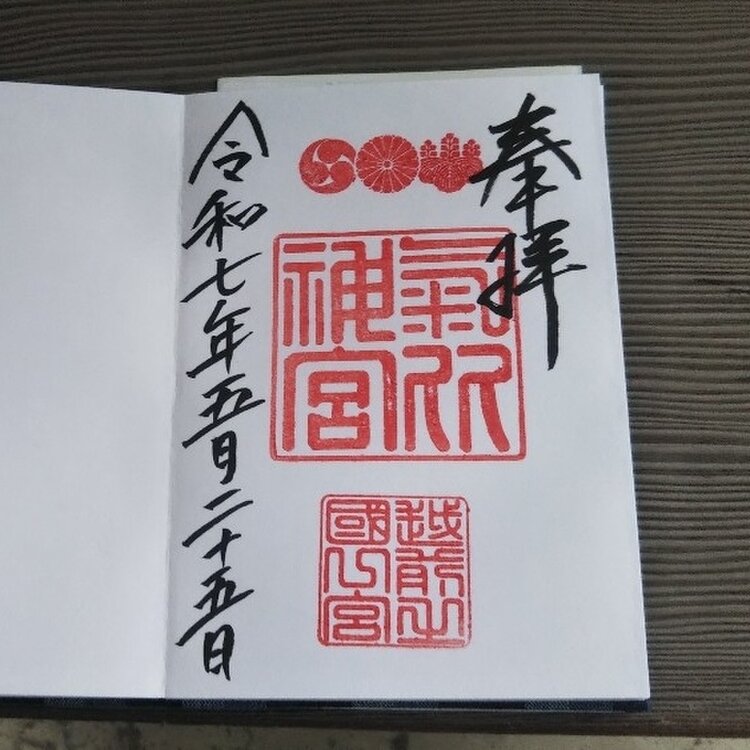 奉拝
氣比
神宮
越前之
國宮
令和七年五月二十五日